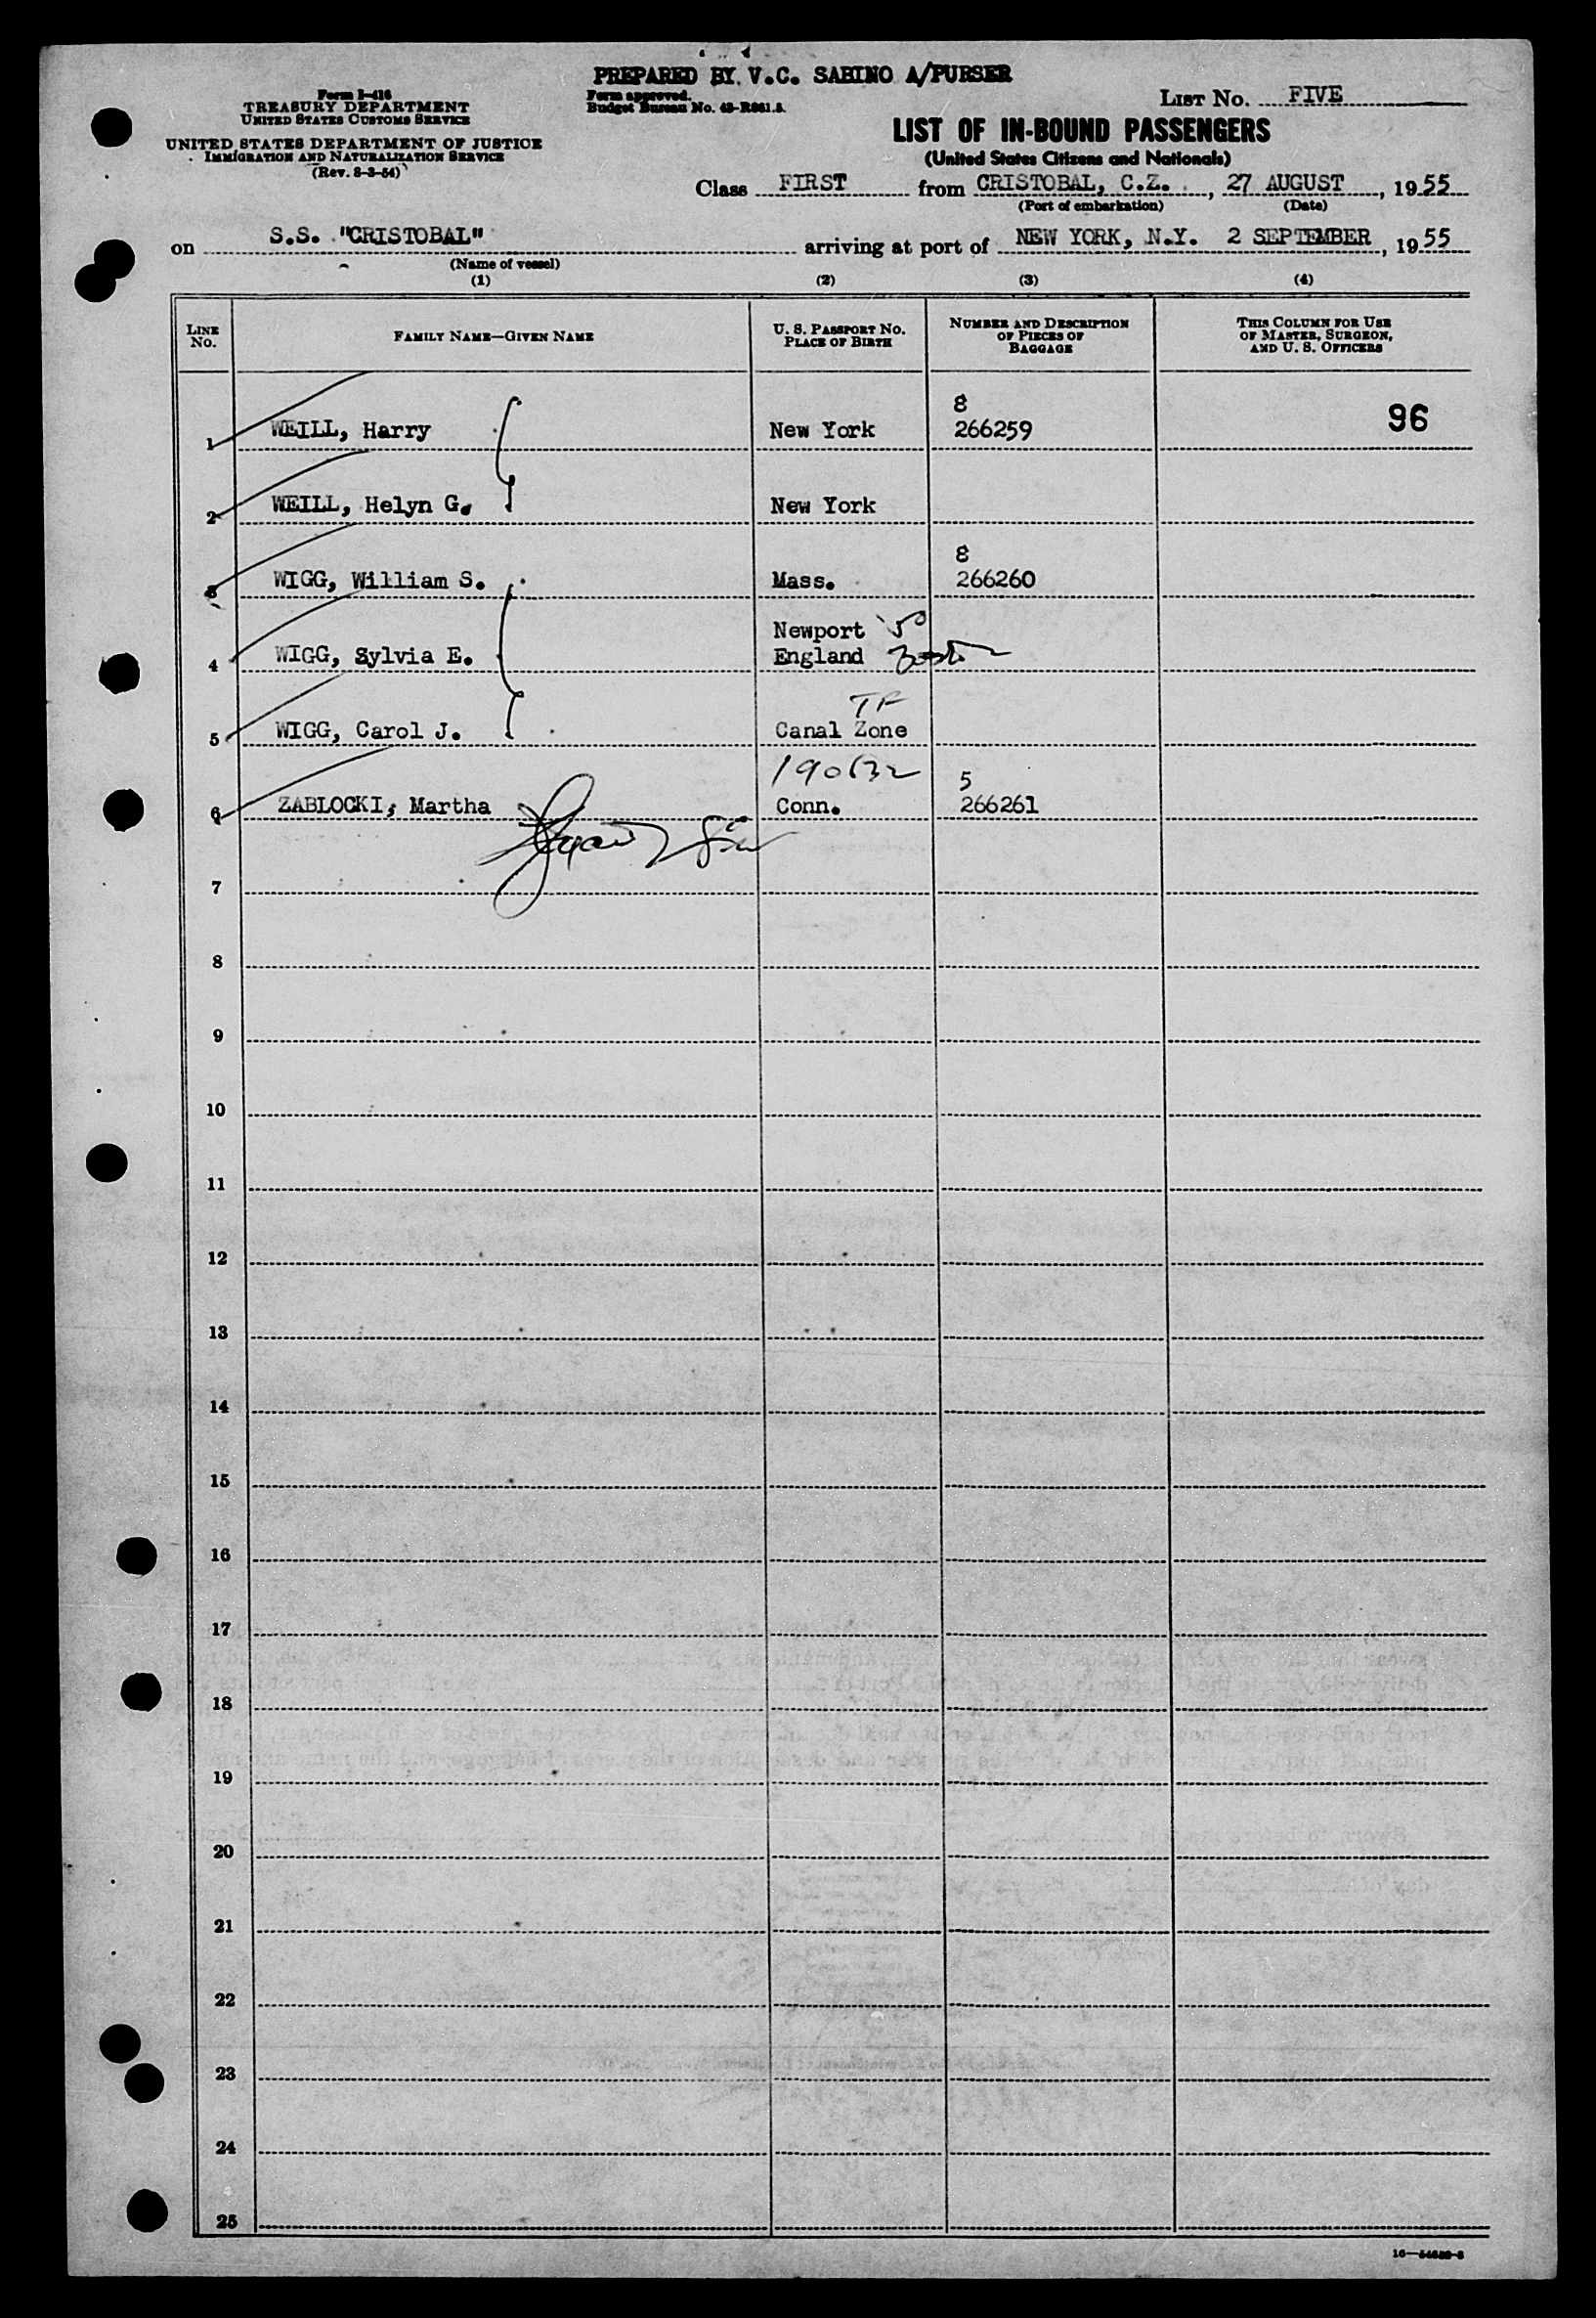 PREPARED BY V.C. SABINO A/PURSER
Form I-416
TREASURY DEPARTMENT
UNITED STATES CUSTOMS SERVICE
UNITED STATES DEPARTMENT OF JUSTICE
IMMIGRATION AND NATURALIZATION SERVICE
(Rev. 8-3-54)
Form approved.
Budget Bureau No. 43-R361.5.
LIST No. FIVE
LIST OF IN-BOUND PASSENGERS
(United States Citizens and Nationals)
Class FIRST from CRISTOBAL, C.Z. , 27 AUGUST , 1955
(Port of embarkation) (Date)
on S.S. "CRISTOBAL" arriving at port of NEW YORK, N.Y. 2 SEPTEMBER , 1955
(Name of vessel)
(1) (2) (3) (4)
LINE No. FAMILY NAME—GIVEN NAME U. S. PASSPORT No. PLACE OF BIRTH NUMBER AND DESCRIPTION OF PIECES OF BAGGAGE THIS COLUMN FOR USE OF MASTER, SURGEON, AND U. S. OFFICERS
8
1 WEILL, Harry New York 266259 96
2 WEILL, Helyn G. New York
8
3 WIGG, William S. Mass. 266260
Newport
4 WIGG, Sylvia E. England
5 WIGG, Carol J. Canal Zone
5
6 ZABLOCKI, Martha Conn. 266261
7
8
9
10
11
12
13
14
15
16
17
18
19
20
21
22
23
24
25